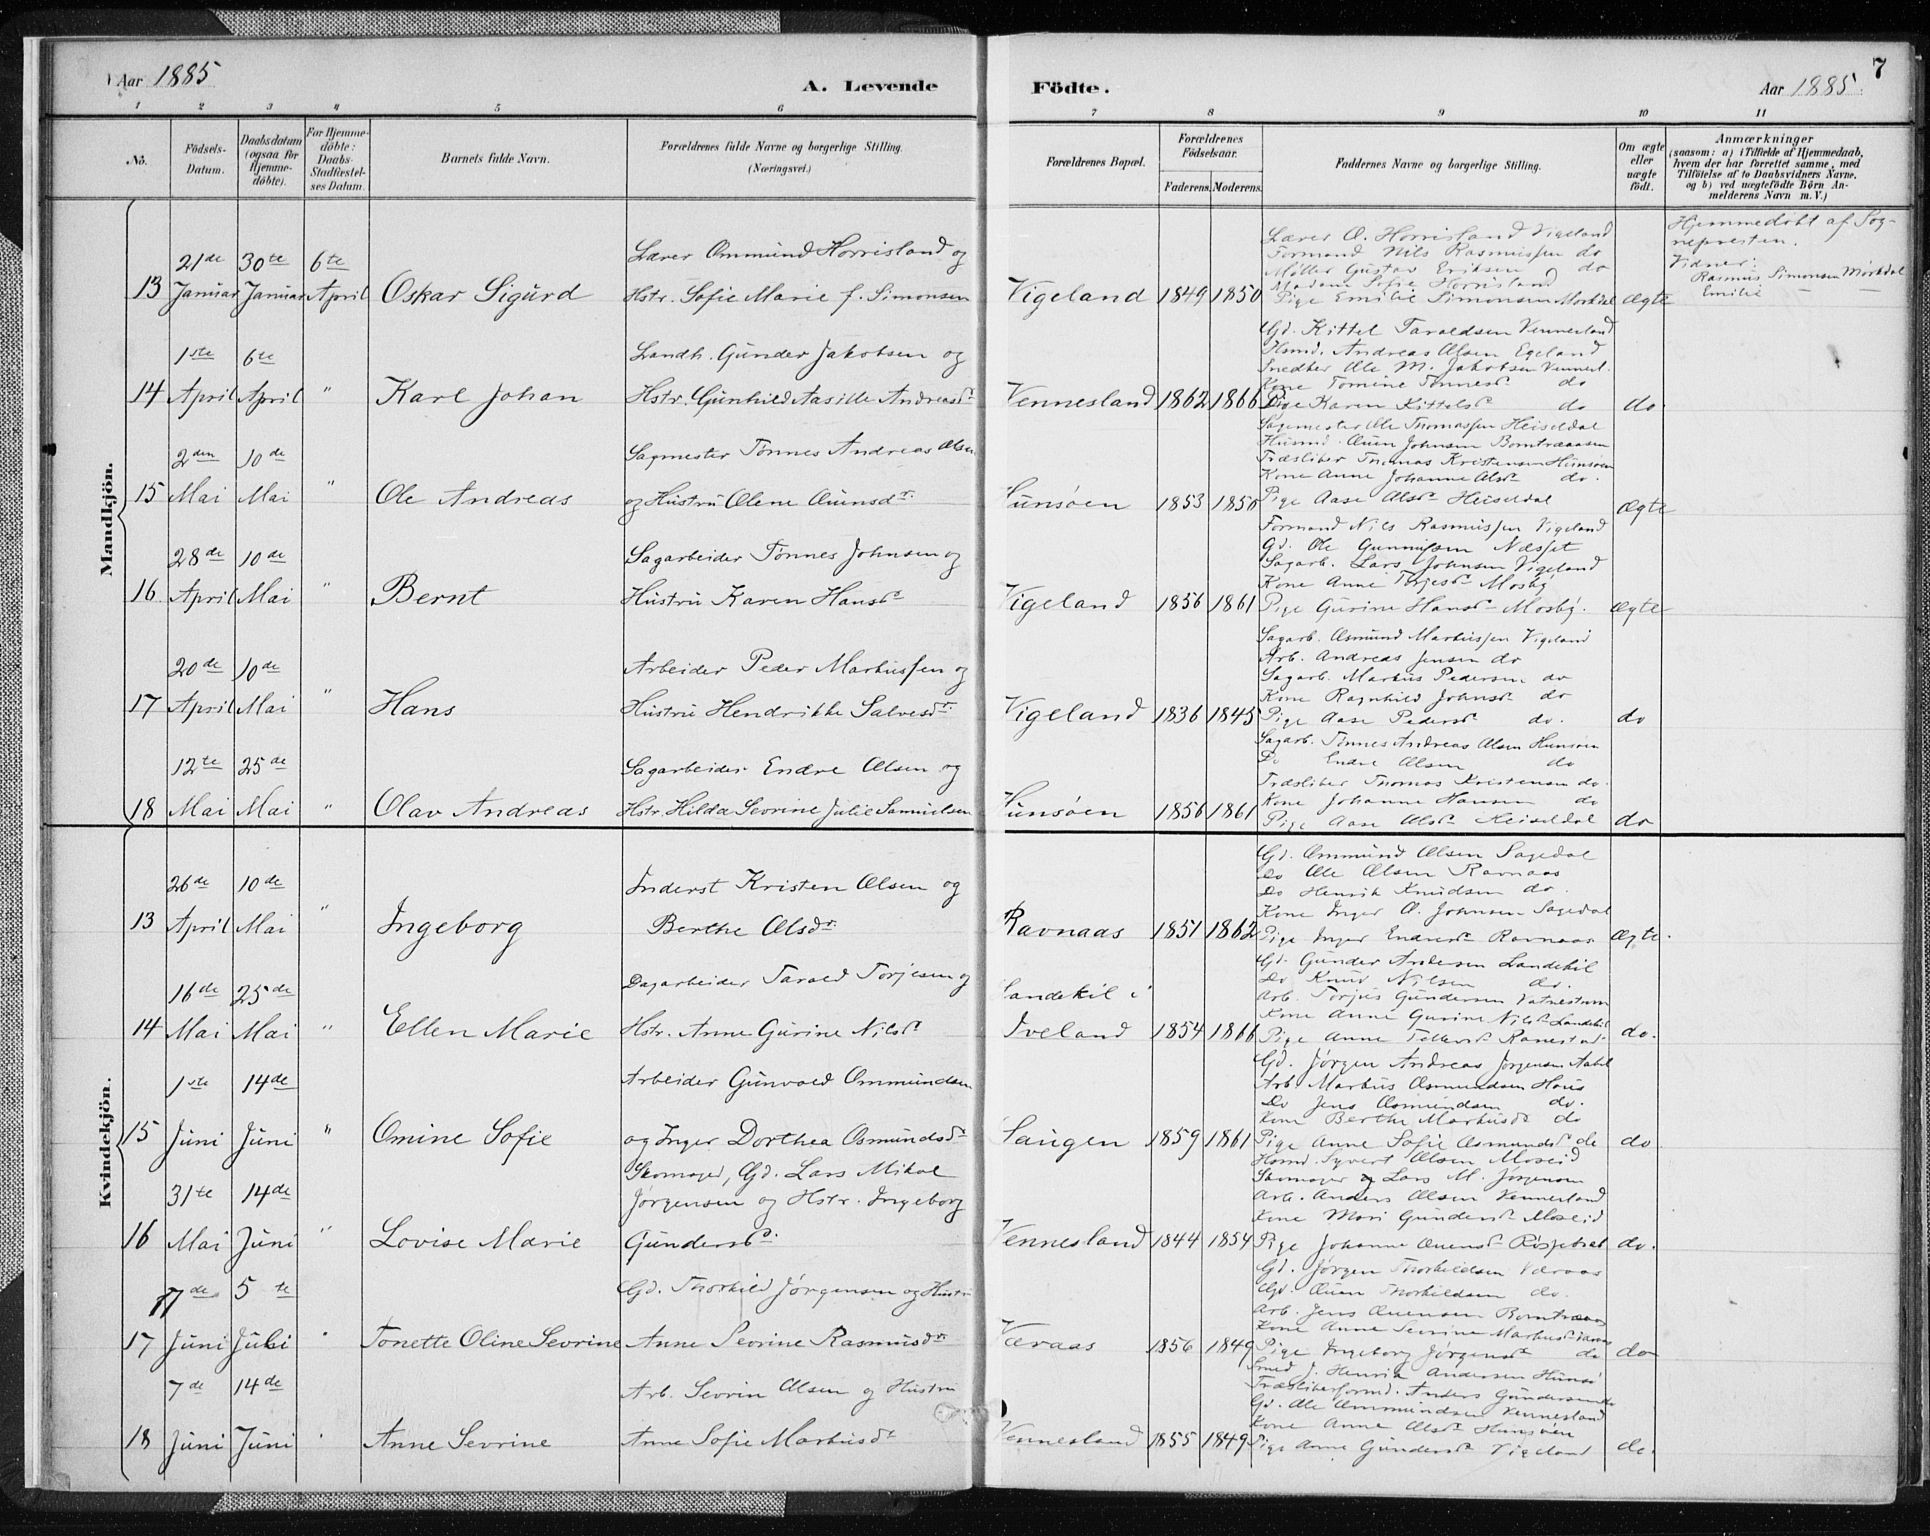 Aar 1885
A. Levende
Födte.
Aar 1885.
7
1 2 3 4 5 6 7 8 9 10 11
No.
Födsels-Datum.
Daabsdatum (ogsaa for Hjemme-döbte).
For Hjemme-döbte: Daabs-Stadfæstel-ses Datum.
Barnets fulde Navn.
Forældrenes fulde Navne og borgerlige Stilling.
(Næringsvei.)
Forældrenes Bopæl.
Forældrenes Födselsaar.
Faderens. Moderens.
Faddernes Navne og borgerlige Stilling.
Om ægte eller uægte födt.
Anmærkninger
(saasom: a) i Tilfælde af Hjemmedaab,
hvem der har forrettet samme, med
Tilföielse af to Daabsvidners Navne,
og b) ved uægtefödte Börn An-
melderens Navn m. V.)
Mandkjön.
21de 30te 6te
Lærer Ommund Horrisland og
Lærer O. Horrisland Vigeland
Formand Nils Rasmussen do
Møller Gustav Eriksen do
Madame Sofie Horrisland
Hjemmedøbt af Sog-
nepresten.
Vidner:
Rasmus Simonsen Mørkdal
Emilie
13 Januar Januar April Oskar Sigurd Hstr. Sofie Marie f. Simonsen Vigeland 1849 1850 Pige Emilie Simonsen Mørkdal ægte
1ste 6te
Landh. Gunder Jakobsen og
Gd. Kittel Taraldsen Vennesland
Hsmd. Andreas Olsen Egeland
Snedker Ole M. Jakobsen Vennesl.
Kone Tomine Tønnesd. do
14 April April " Karl Johan Hstr. Gunhild Aasille Andreasdr. Vennesland 1862 1866 Pige Karen Kittelsd. do do
2den 10de
Sagmester Tønnes Andreas Olsen
Sagmester Ole Thomassen Heiseldal
Husmd. Ouen Johnsen Bomtraaasen
Træsliber Thomas Kristensen Hunsøen
Kone Anne Johanne Olsd. do.
15 Mai Mai " Ole Andreas og Hustru Olene Ouensdr. Hunsøen 1853 1850 Pige Aase Olsd. Heiseldal Ægte
28de 10de
Sagarbeider Tønnes Johnsen og
Formand Nils Rasmussen Vigeland
Gd. Ole Gunnufsen Næsset
Sagarb. Lars Johnsen Vigeland
Kone Anne Torjesd. Mosby
16 April Mai " Bernt Hustru Karen Hansd. Vigeland 1856 1861 Pige Gurine Hansd. Mosby. Ægte
20de 10de
Arbeider Peder Markussen og
Sagarb. Osmund Markussen Vigeland
Arb. Andreas Jensen do
Sagarb. Markus Pedersen do
Kone Ragnhild Johnsd. do
17 April Mai " Hans Hustru Hendrikke Salvesdr. Vigeland 1836 1845 Pige Aase Pedersd. do. do
12te 25de
Sagarbeider Endre Olsen og
Sagarb. Tønnes Andreas Olsen Hunsøen
Do Endre Olsen do
Træsliber Thomas Kristensen do.
Kone Johanne Hansen do
18 Mai Mai " Olav Andreas Hstr. Hilda Sevrine Julie Samuelsen Hunsøen 1856 1861 Pige Aase Olsd. Heiseldal do
Kvindekjön.
26de 10de
Inderst Kristen Olsen og
Gd. Ommund Olsen Sagedal
Do Ole Olsen Ravnaas
Do Henrik Knudsen do.
Kone Inger O. Johnsen Sagedal
13 April Mai " Ingeborg Berthe Olsdr. Ravnaas 1851 1862 Pige Inger Endresd. Ravnaas Ægte.
16de 25de
Dagarbeider Tarald Torjesen og
Landekil i
Gd. Gunder Andersen Landekil
Do Knud Nilsen do.
Arb. Torjus Gundersen Vatnestrøm
Kone Anne Gurine Nilsd. Landekil
14 Mai Mai " Ellen Marie Hstr. Anne Gurine Nilsd. Iveland 1854 1866 Pige Anne Tellefsd. Ranestad do.
1ste 14de
Arbeider Gunvald Ommundsen
Gd. Jørgen Andreas Jørgensen
Arb. Markus Osmundsen Hous
Do Jens Osmundsen do.
Kone Berthe Markusd. do
15 Juni Juni " Omine Sofie og Inger Dorthea Osmundsd. Haugen 1859 1861 Pige Anne Sofie Osmundsd. do do
31te 14de
Skomager, Gd. Lars Mikal
Jørgensen og Hstr. Ingeborg
Hsmd. Syvert Olsen Moseid
Skomager Lars M. Jørgensen
Arb. Anders Olsen Vennesland
Kone Mari Gundersd. Moseid
16 Mai Juni " Lovise Marie Gundersd. Vennesland 1844 1854 Pige Johanne Ouensd. do.
7de 5te
Gd. Thorkild Jørgensen og Hustru
Gd. Jørgen Thorkildsen Væraas
Gd. Ouen Thorkildsen do.
Arb. Jens Ouensen
Kone Anne Sevrine Markusd.
17 Juni Juli Tonette Oline Sevrine Anne Sevrine Rasmusdr. Væraas 1856 1849 Pige Ingeborg Jørgensd. do do
7de 14de
Arb. Sevrin Olsen og Hustru
Smed J. Henrik Andersen Hunsø
Træsliberformd. Anders Gundersen
Gd. Ole Ommundsen Vennesland
Kone Anne Olsd. Hunsøen
18 Juni Juni Anne Sevrine Anne Sofie Markusd. Vennesland 1855 1849 Pige Anne Gundersd. Vigeland do.